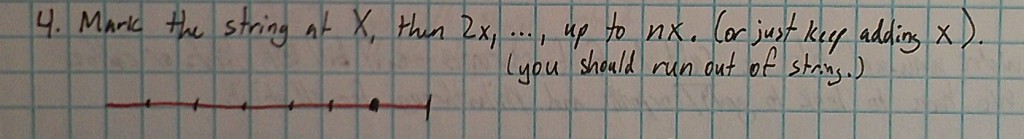 4. Mark the string at X, then 2x, ..., up to nx. (or just keep adding x).
(you should run out of string.)